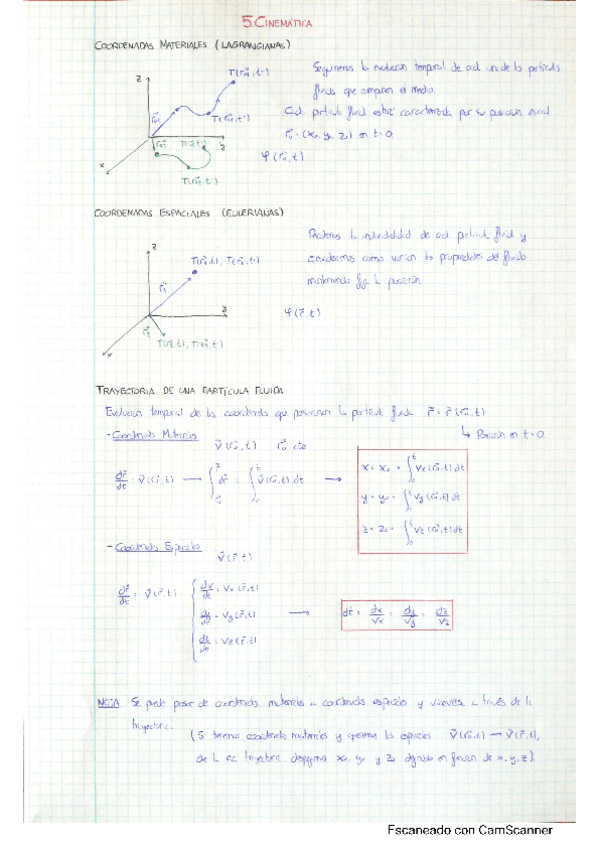 5. CINEMÁTICA
COORDENADAS MATERIALES (LAGRANGIANAS)
Seguiremos la evolución temporal de cada una de las partículas
fluidas que componen el medio.
Cada partícula fluida estará caracterizada por su posición inicial
r⃗₀ = (x₀, y₀, z₀) en t=0.
φ(r⃗₀, t)
z
T(r⃗₀₁, t'')
T(r⃗₀₁, t')
r⃗₀₁
r⃗₀₂
x
T(r⃗₀₂, t')
COORDENADAS ESPACIALES (EULERIANAS)
Perdemos la individualidad de cada partícula fluida y
consideramos como varían las propiedades del fluido
manteniendo fija la posición.
φ(r⃗, t)
z
T(r⃗₁, t), T(r⃗₁, t')
r⃗₁
r⃗₂
x
T(r⃗₂, t), T(r⃗₂, t')
TRAYECTORIA DE UNA PARTÍCULA FLUIDA
Evolución temporal de las coordenadas que posicionan la partícula fluida r⃗ = r⃗(r⃗₀, t)
↳ Posición en t=0.
- Coordenadas Materiales
v⃗(r⃗₀, t) r⃗₀ cte
dr⃗/dt = v⃗(r⃗₀, t) → ∫ dr⃗ = ∫ v⃗(r⃗₀, t) dt →
x = x₀ + ∫₀ᵗ vx(r⃗₀, t) dt
y = y₀ + ∫₀ᵗ vy(r⃗₀, t) dt
z = z₀ + ∫₀ᵗ vz(r⃗₀, t) dt
- Coordenadas Espaciales
v⃗(r⃗, t)
dx/dt = vx(r⃗, t)
dr⃗/dt = v⃗(r⃗, t) dy/dt = vy(r⃗, t) → dt = dx/vx = dy/vy = dz/vz
dz/dt = vz(r⃗, t)
NOTA Se puede pasar de coordenadas materiales a coordenadas espaciales y viceversa a través de la
trayectoria.
(Si tenemos coordenadas materiales y queremos las espaciales v⃗(r⃗₀, t) → v⃗(r⃗, t),
de la ec trayectoria despejamos x₀, y₀ y z₀ en función de x, y, z).
Escaneado con CamScanner